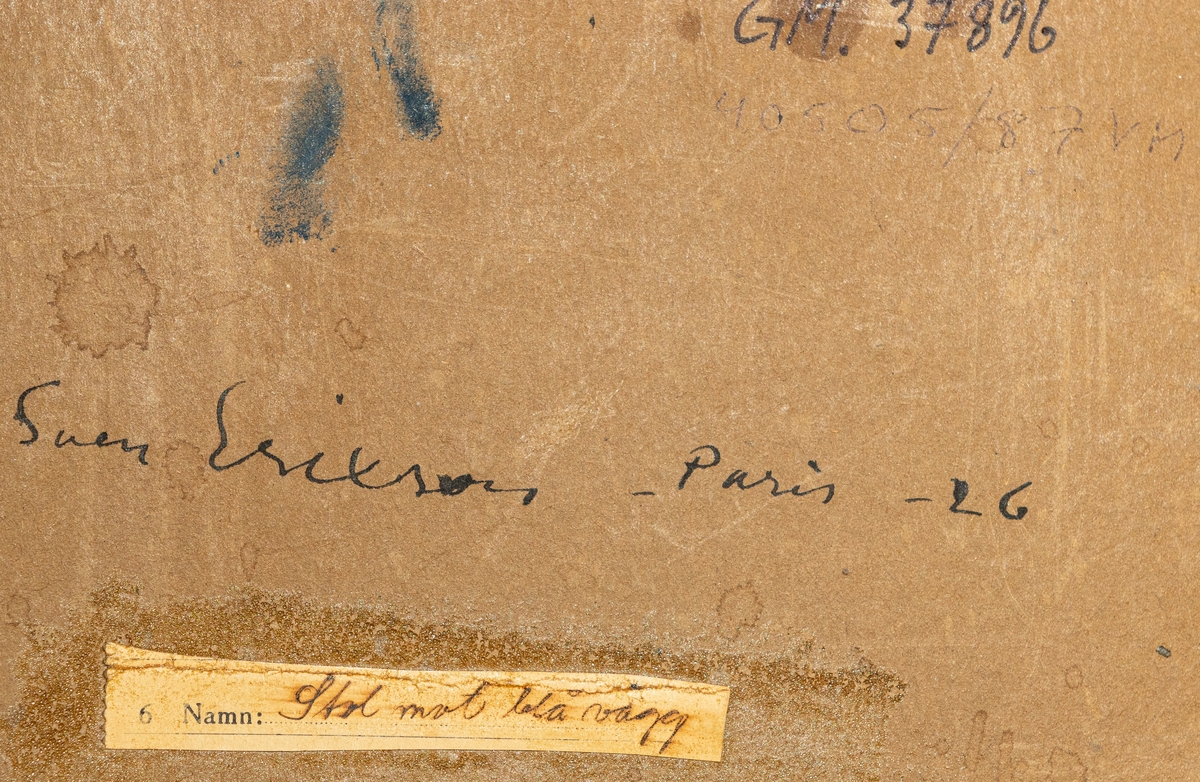 GM. 37896
40505/87 VM
Sven Erixson - Paris -26
6 Namn: Stol mot blå vägg